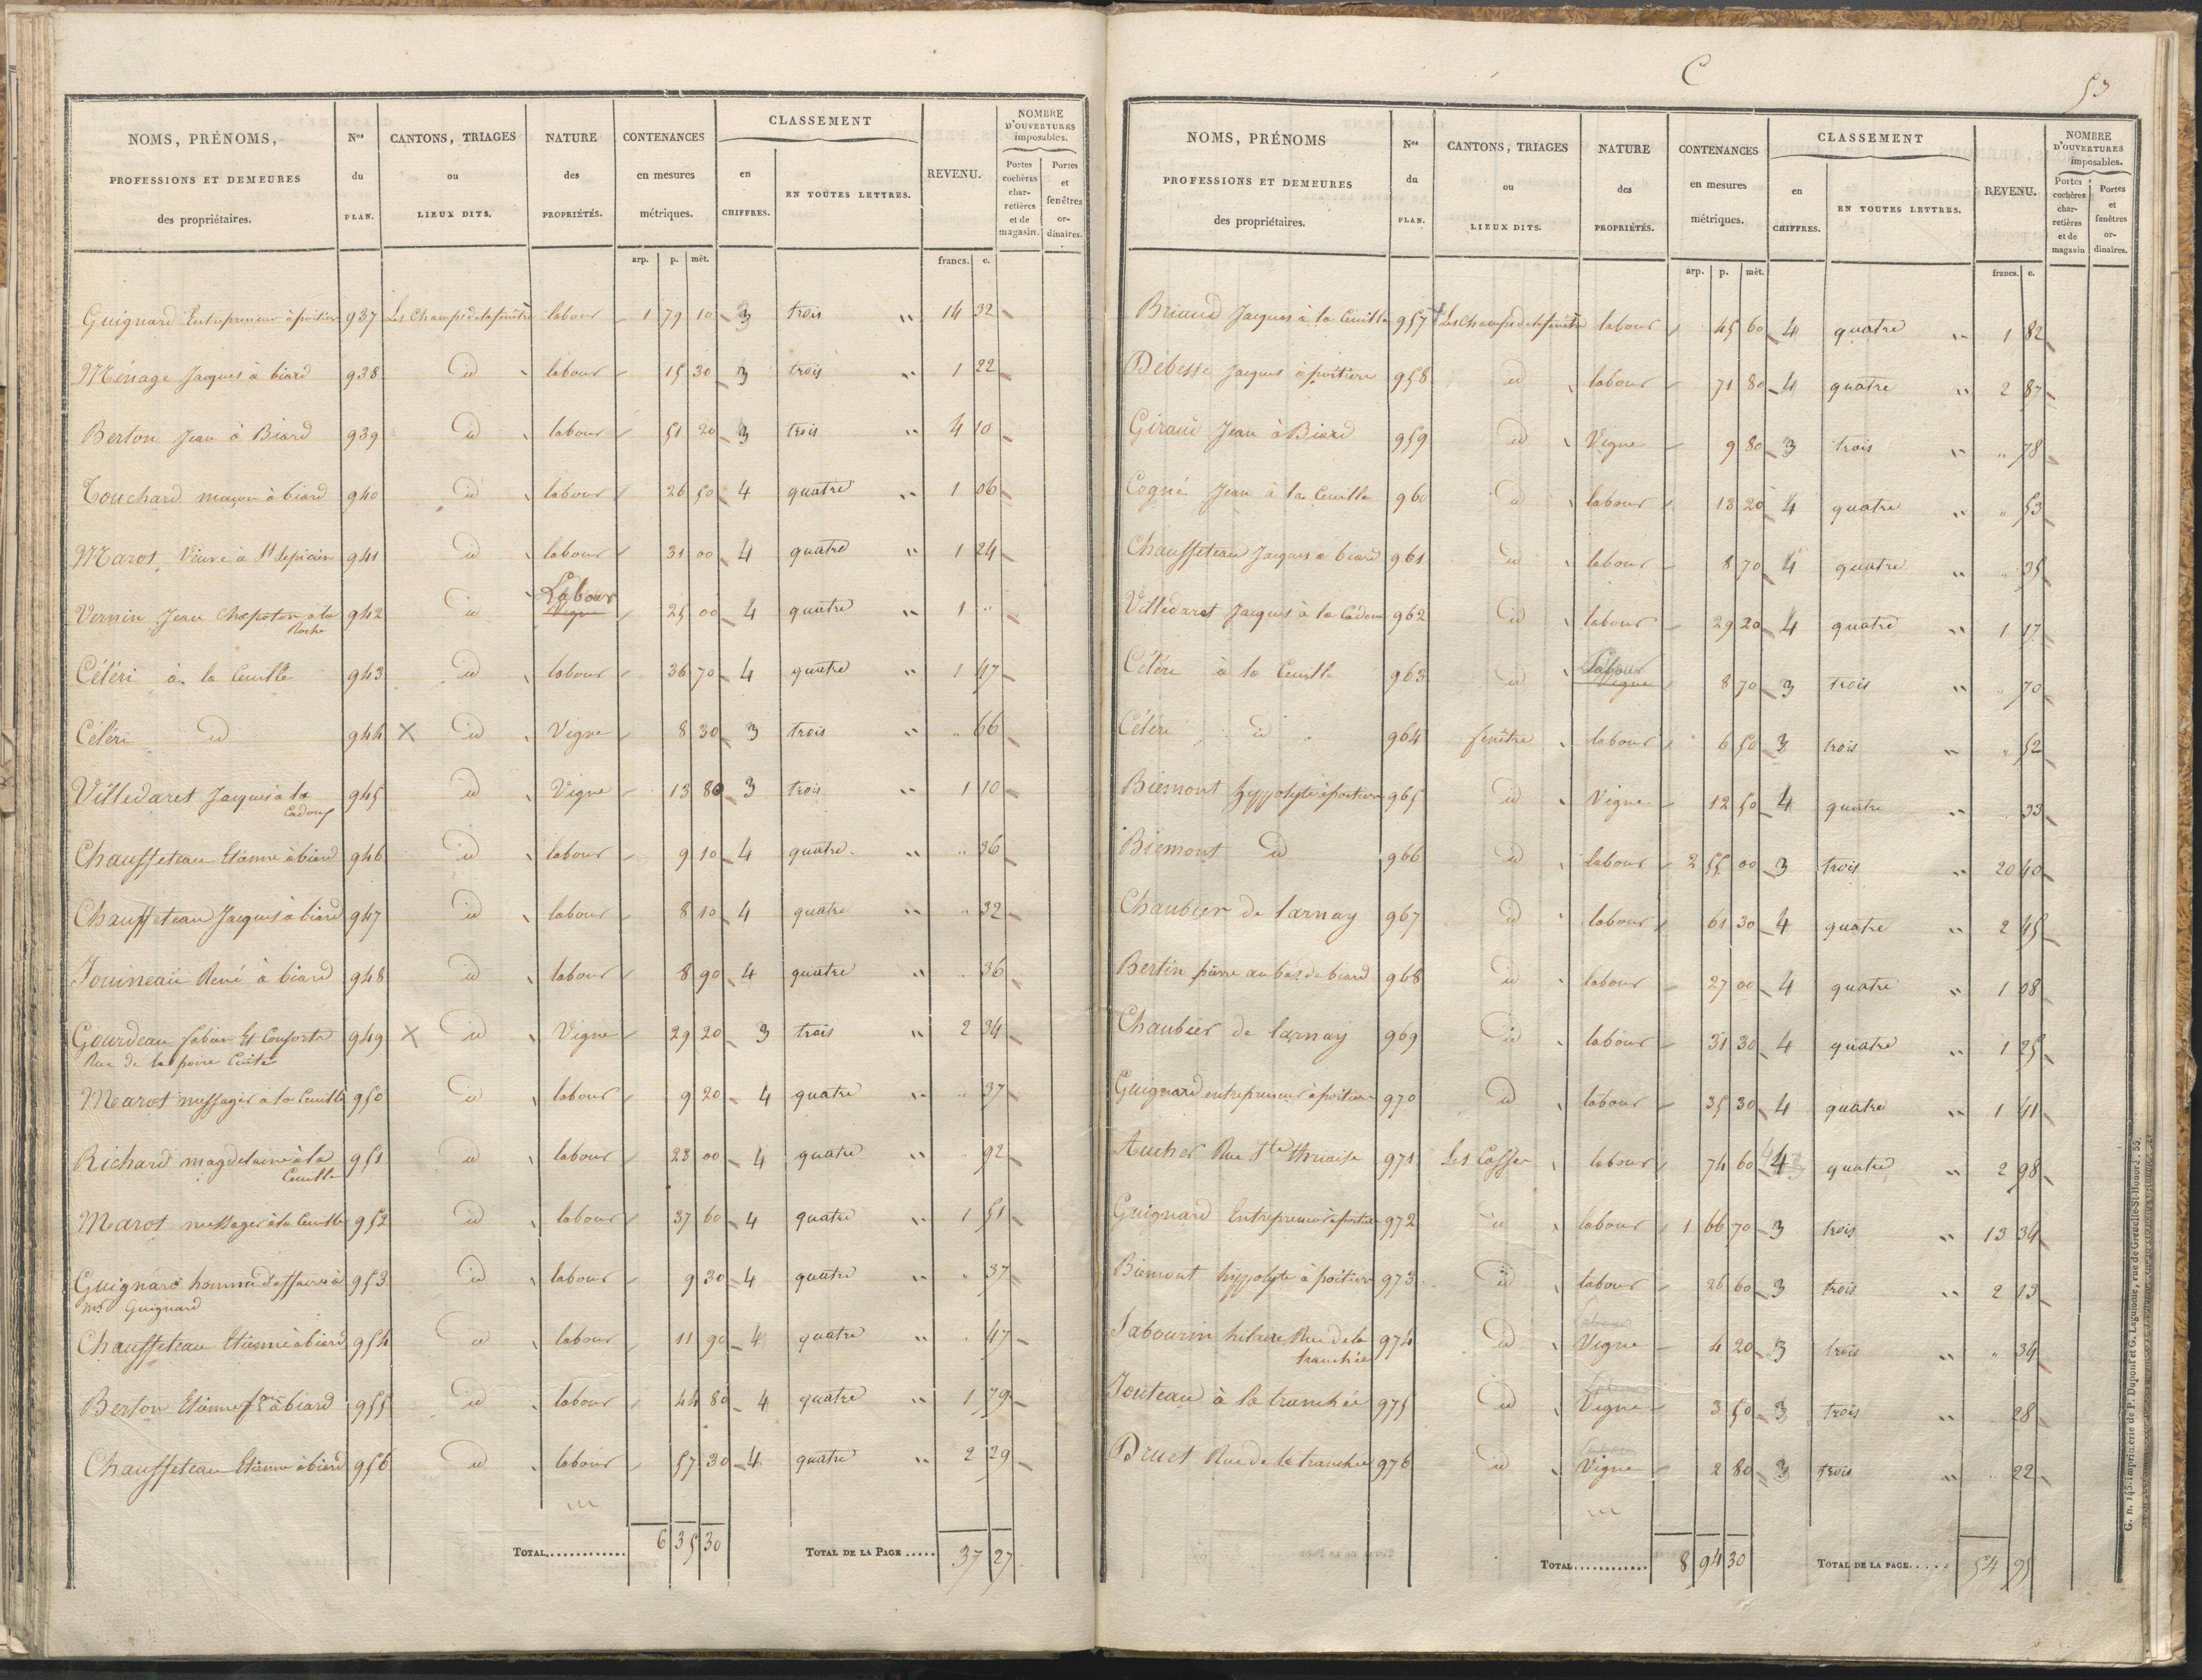 NOMS, PRÉNOMS, PROFESSIONS ET DEMEURES des propriétaires. Nos du PLAN. CANTONS, TRIAGES ou LIEUX DITS. NATURE des PROPRIÉTÉS. CONTENANCES en mesures métriques. CLASSEMENT en CHIFFRES. EN TOUTES LETTRES. REVENU. NOMBRE D'OUVERTURES imposables. Portes cochères charretières et de magasin. Portes et fenêtres ordinaires.
arp. p. mèt. francs. c.
Guignard Entrepreneur à poitiers 937 Les Champs de la fenêtre labour 1 79 10 3 trois " 14 32
Ménage Jacques à biard 938 id labour 15 30 3 trois " 1 22
Berton Jean à Biard 939 id labour 51 20 3 trois " 4 10
Touchard maçon à biard 940 id labour 26 50 4 quatre " 1 06
Marot Veuve à St 941 id labour 31 00 4 quatre " 1 24
Labour
Vernin Jean à la 942 id Vigne 25 00 4 quatre " 1 "
Roche
Céléri à la Cueille 943 id labour 36 70 4 quatre " 1 47
Céléri id 944 × id Vigne 8 30 3 trois " " 66
Villedaret Jacques à la 945 id Vigne 13 80 3 trois " 1 10
Cadoue
Chauffeteau Etienne à biard 946 id labour 9 10 4 quatre " " 36
Chauffeteau Jacques à biard 947 id labour 8 10 4 quatre " " 32
Jouineau René à biard 948 id labour 8 90 4 quatre " " 36
Gourdeau fabien Et Consorts 949 × id Vigne 29 20 3 trois " 2 34
Rue de la poire Cuite
Marot messager à la Cueille 950 id labour 9 20 4 quatre " " 37
Richard magdelaine à la 951 id labour 23 00 4 quatre " " 92
Cueille
Marot messager à la Cueille 952 id labour 37 60 4 quatre " 1 51
Guignard homme d'affaires à 953 id labour 9 30 4 quatre " " 37
mr Guignard
Chauffeteau Etienne à biard 954 id labour 11 90 4 quatre " " 47
Berton Etienne à biard 955 id labour 44 80 4 quatre " 1 79
Chauffeteau Etienne à biard 956 id labour 57 30 4 quatre " 2 29
TOTAL............ 6 35 30 TOTAL DE LA PAGE ..... 37 27
C
53
NOMS, PRÉNOMS PROFESSIONS ET DEMEURES des propriétaires. Nos du PLAN. CANTONS, TRIAGES ou LIEUX DITS. NATURE des PROPRIÉTÉS. CONTENANCES en mesures métriques. CLASSEMENT en CHIFFRES. EN TOUTES LETTRES. REVENU. NOMBRE D'OUVERTURES imposables. Portes cochères charretières et de magasin Portes et fenêtres ordinaires.
arp. p. mèt. francs. c.
Briaud Jacques à la Cueille 957 Les Champs de la fenêtre labour 45 60 4 quatre " 1 82
Débesse Jacques à poitiers 958 id labour 71 80 4 quatre " 2 87
Giraud Jean à Biard 959 id Vigne 9 80 3 trois " " 78
Cogné Jean à la Cueille 960 id labour 13 20 4 quatre " " 53
Chauffeteau Jacques à biard 961 id labour 8 70 4 quatre " " 35
Villedaret Jacques à la Cadoue 962 id labour 29 20 4 quatre " 1 17
Labour
Céléri à la Cueille 963 id Vigne 8 70 3 trois " " 70
Céléri id 964 fenêtre labour 6 50 3 trois " " 52
Biémont hyppolyte à poitiers 965 id Vigne 12 50 4 quatre " " 33
Biémont id 966 id labour 2 55 00 3 trois " 20 40
Chaubier de larnay 967 id labour 61 30 4 quatre " 2 45
Bertin pierre au bas de biard 968 id labour 27 00 4 quatre " 1 08
Chaubier de larnay 969 id labour 31 30 4 quatre " 1 25
Guignard entrepreneur à poitiers 970 id labour 35 30 4 quatre " 1 41
Aucher Rue Ste 971 Les Cosses labour 74 60 4 quatre " 2 98
Guignard Entrepreneur à poitiers 972 id labour 1 66 70 3 trois " 13 34
Biémont hyppolyte à poitiers 973 id labour 26 60 3 trois " 2 13
labour
Sabourin hilaire Rue de la 974 id Vigne 4 20 3 trois " " 34
tranchée
Jouteau à la tranchée 975 id Vigne 3 50 3 trois " " 28
Druet Rue de la tranchée 976 id Vigne 2 80 3 trois " " 22
TOTAL............ 8 94 30 TOTAL DE LA PAGE..... 54 95
G. n. 145. Imprimerie de P. Dupont et G. Laguionie, rue de Grenelle-St-Honoré, 55.